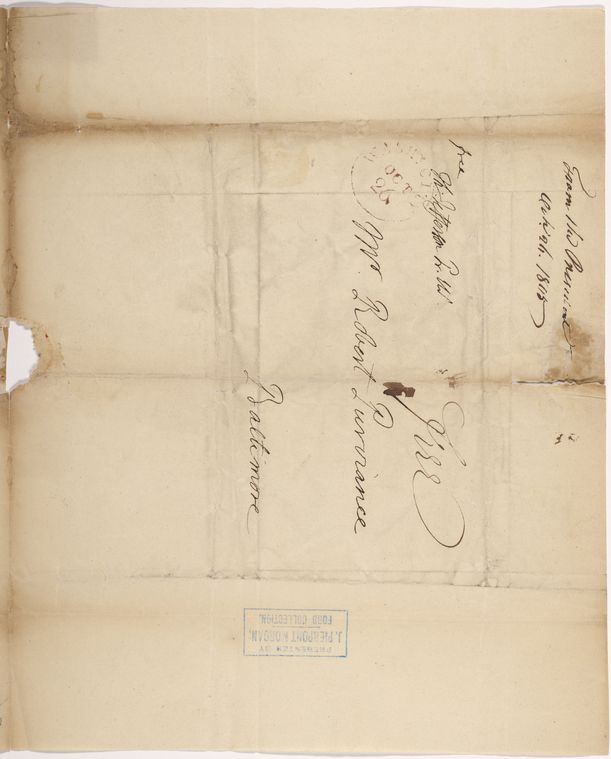 From the President
Octr. 24. 1805
free
Th: Jefferson Pr. US.
OCT
26
Free
Mr. Robert Purviance
Baltimore
PRESENTED BY
J. PIERPONT MORGAN,
FORD COLLECTION.